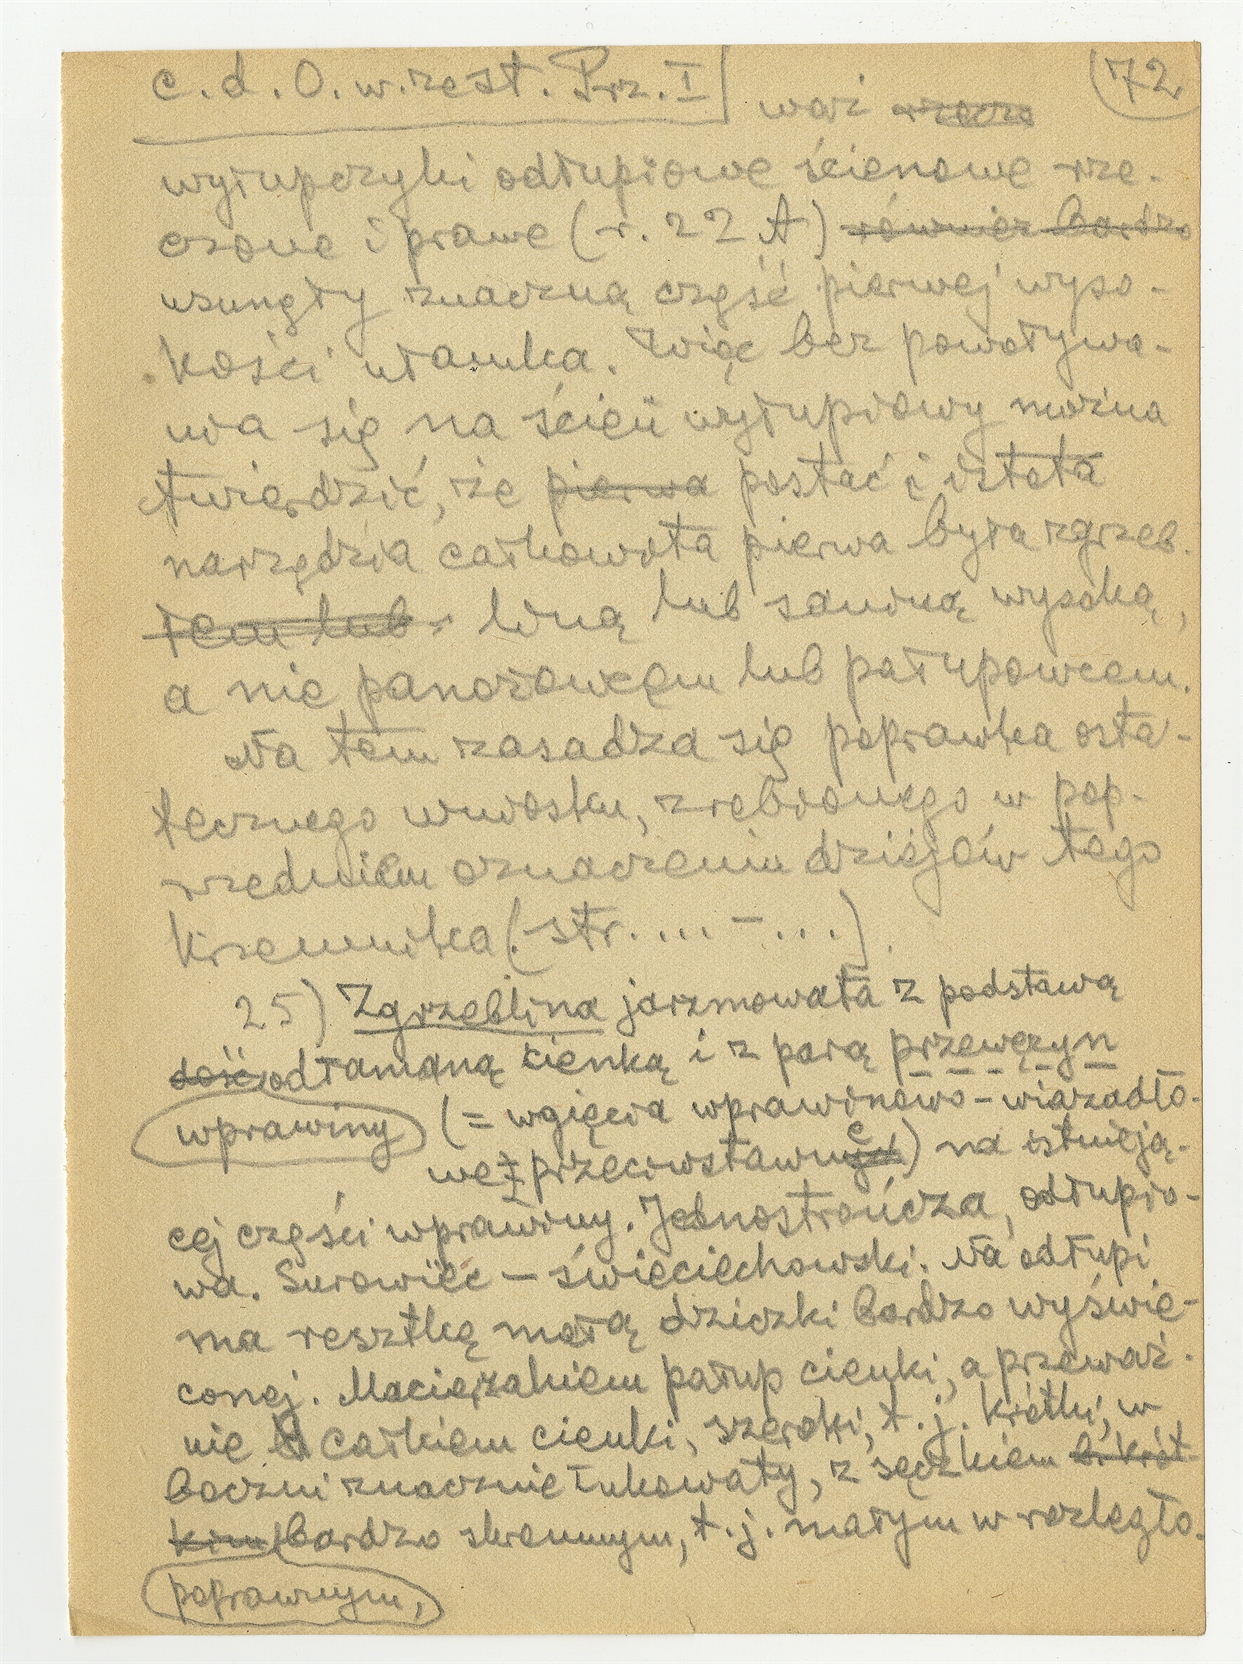 c. d. O. w. zest. Prz. I (72
waż rzecz
wyłupczyki odłupiowe ścienowe rze-
czone i prawe (r. 22 A) również bardzo
usunęły znaczną część pierwej wyso-
kości ułamka. Więc bez powoływa-
nia się na ścień wyłupiowy można
twierdzić, że pierwa postać i istota
narzędzia całkowita pierwa była zgrzeb-
łem lub liną lub sanicą wysoką,
a nie panożowcem lub połupowcem.
Na tem zasadza się poprawka osta-
tecznego wniosku, zrobionego w pop-
rzedniem oznaczeniu dziejów tego
krzemnika (str. ... – ...).
25) Zgrzeblina jarzmowata z podstawą
dość odłamaną cienką i z parą przewęzyn
wprawiny (= wgięcia wprawinowo-wiązadło-
we i przeciwstawne) na istnieją-
cej części wprawiny. Jednostrończa, odłupio-
wa. Surowiec – świeciechowski. Na odłupi
ma resztkę małą dziczki bardzo wyświe-
conej. Macierzakiem połup cienki, a przeważ-
nie całkiem cienki, szeroki, t. j. krótki, w
boczni znacznie łukowaty, z sęczkiem b. krót-
kim bardzo skromnym, t. j. małym w rozległo-
poprawnym,